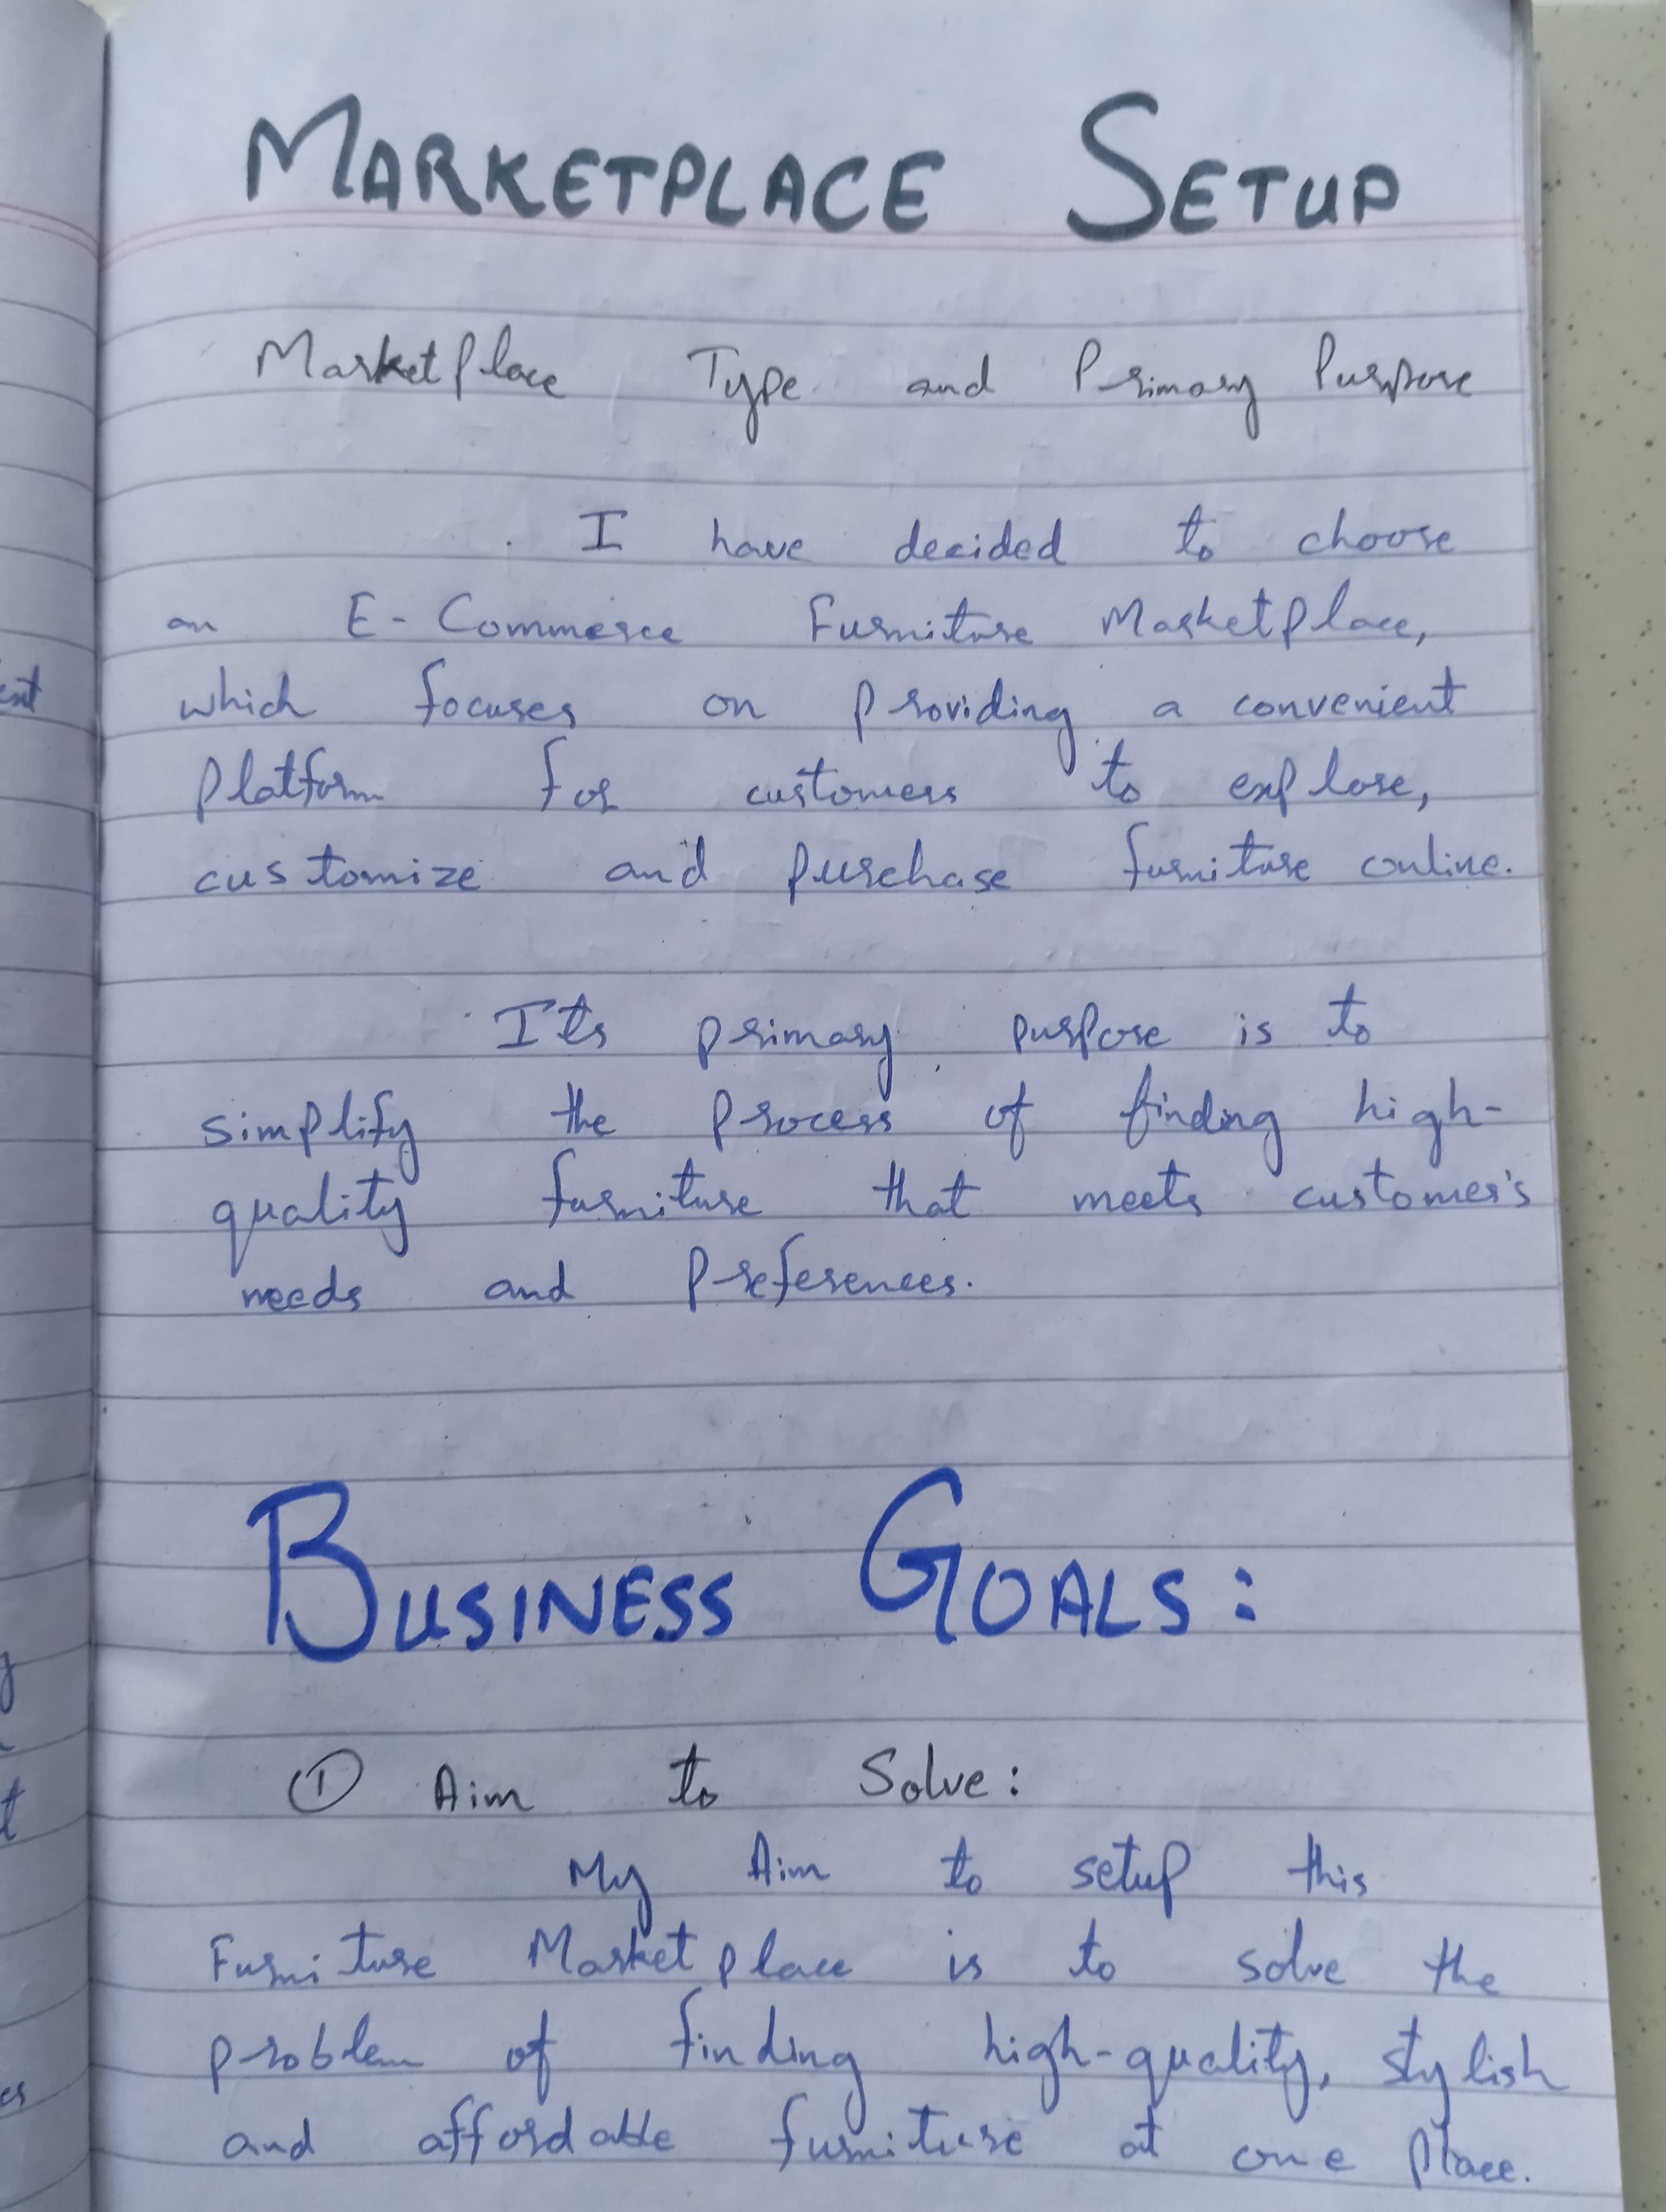 MARKETPLACE SETUP
Marketplace Type and Primary Purpose
I have decided to choose
an E-Commerce Furniture Marketplace,
which focuses on providing a convenient
platform for customers to explore,
customize and purchase furniture online.
It's primary purpose is to
simplify the process of finding high-
quality furniture that meets customer's
needs and preferences.
BUSINESS GOALS:
① Aim to Solve:
My Aim to setup this
Furniture Marketplace is to solve the
problem of finding high-quality, stylish
and affordable furniture at one place.